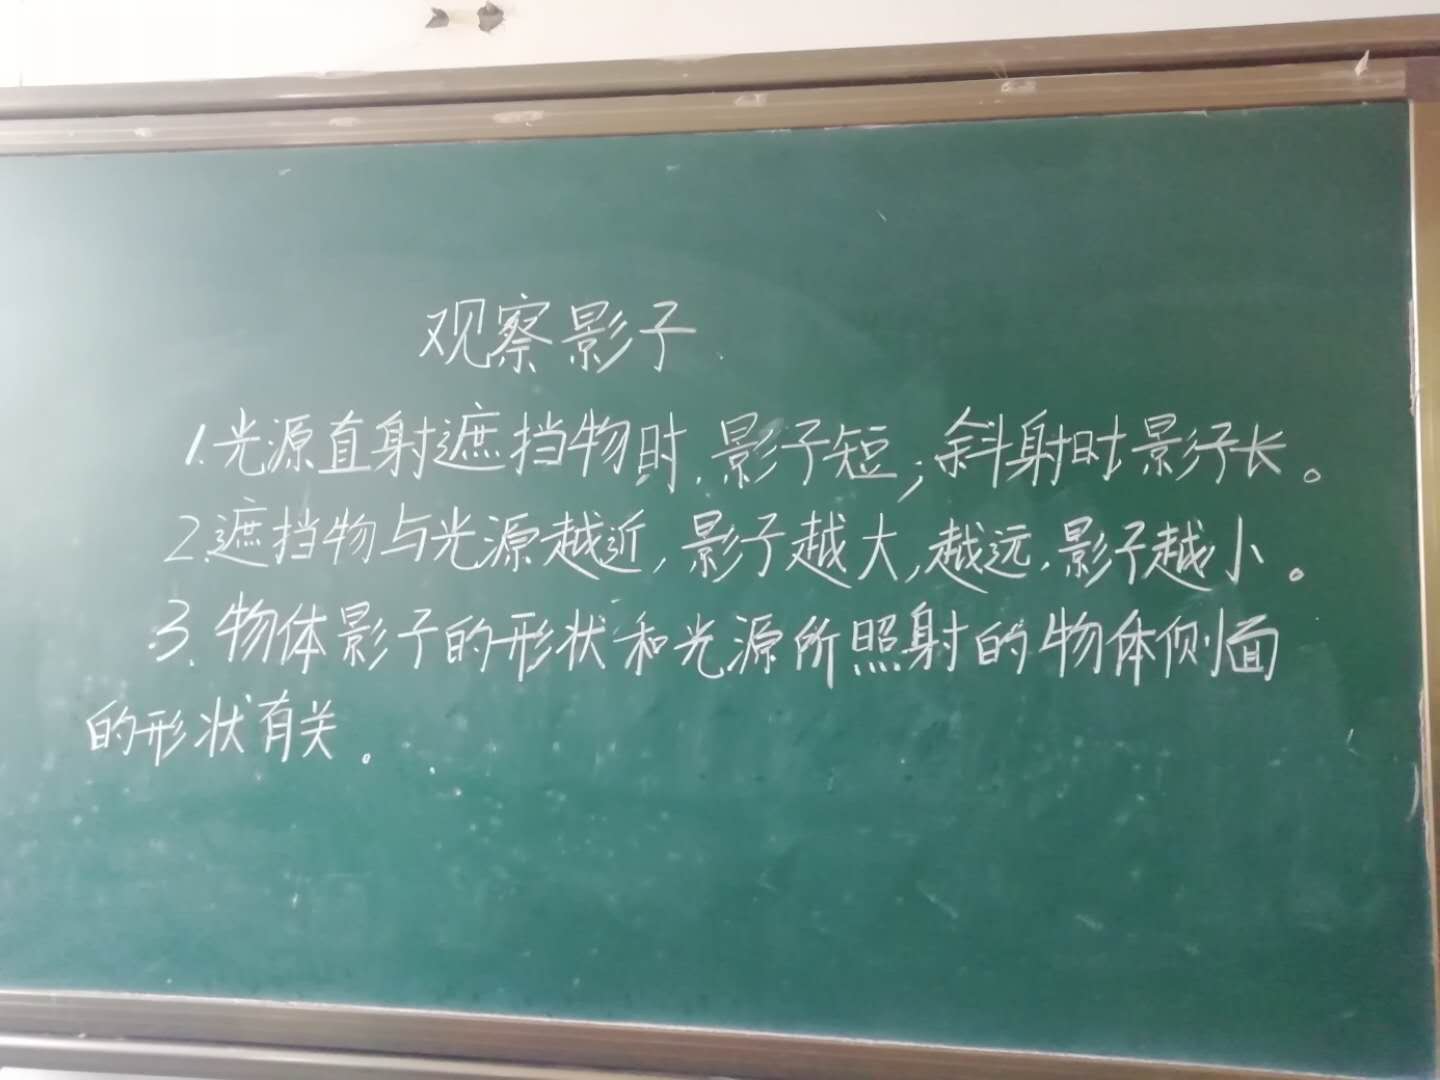 观察影子
1.光源直射遮挡物时,影子短;斜射时影子长。
2.遮挡物与光源越近,影子越大,越远,影子越小。
3.物体影子的形状和光源所照射的物体侧面
的形状有关。